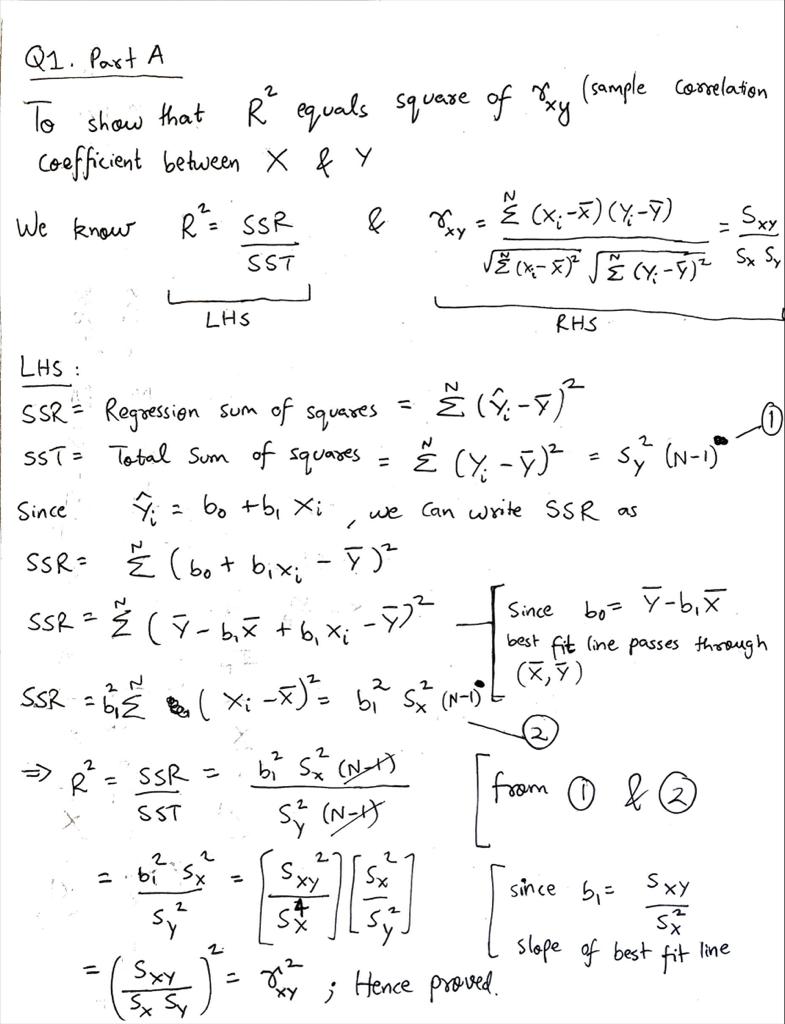 Q1. Part A
To show that R² equals square of r_xy (sample correlation
coefficient between X & Y
We know R² = SSR/SST & r_xy = Σ^N (X_i-X̄)(Y_i-Ȳ) / √Σ^N (X_i-X̄)² √Σ^N (Y_i-Ȳ)² = S_xy / S_x S_y
LHS RHS
LHS :
SSR = Regression sum of squares = Σ^N (Ŷ_i-Ȳ)²
SST = Total Sum of squares = Σ^N (Y_i-Ȳ)² = S_y² (N-1) — ①
Since Ŷ_i = b₀ + b₁ X_i , we can write SSR as
SSR = Σ^N (b₀ + b₁x_i - Ȳ)²
SSR = Σ^N (Ȳ - b₁X̄ + b₁X_i - Ȳ)² — [ Since b₀ = Ȳ-b₁X̄
best fit line passes through
(X̄, Ȳ)
SSR = b₁² Σ^N (X_i - X̄)² = b₁² S_x² (N-1) — ②
⇒ R² = SSR/SST = b₁² S_x² (N-1) / S_y² (N-1) [ from ① & ②
= b₁² S_x² / S_y² = [S_xy² / S_x⁴] [S_x² / S_y²] [ since b₁ = S_xy / S_x²
slope of best fit line
= (S_xy / S_x S_y)² = r_xy² ; Hence proved.